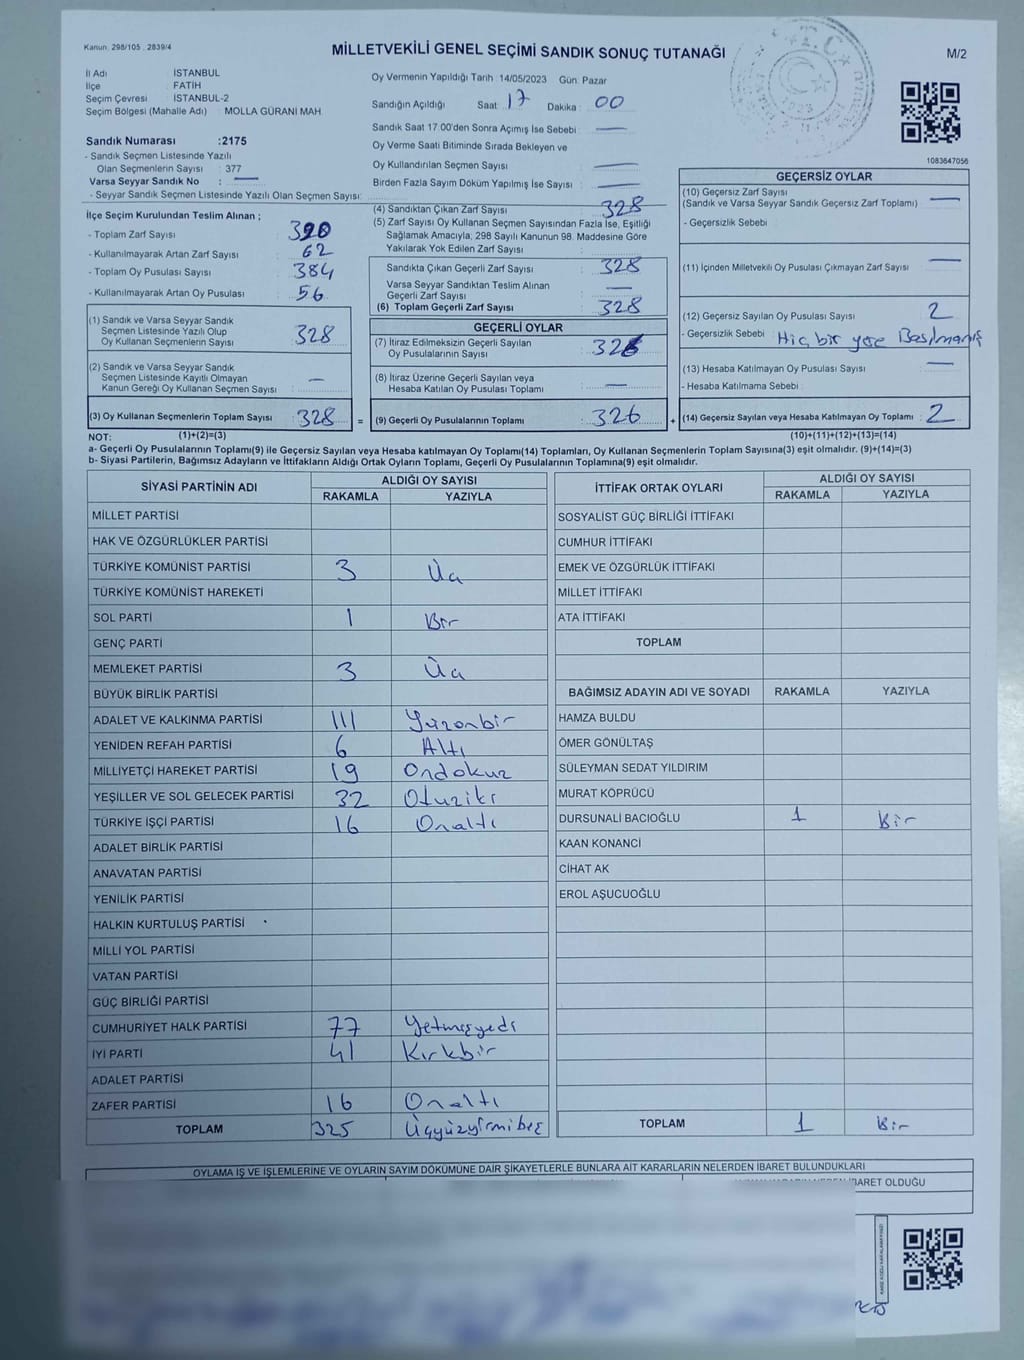 Kanun: 298/105 , 2839/4
MİLLETVEKİLİ GENEL SEÇİMİ SANDIK SONUÇ TUTANAĞI
M/2
İl Adı : İSTANBUL
İlçe : FATİH
Seçim Çevresi : İSTANBUL-2
Seçim Bölgesi (Mahalle Adı) : MOLLA GÜRANİ MAH.
Sandık Numarası :2175
- Sandık Seçmen Listesinde Yazılı
Olan Seçmenlerin Sayısı : 377
Varsa Seyyar Sandık No : —
- Seyyar Sandık Seçmen Listesinde Yazılı Olan Seçmen Sayısı:
Oy Vermenin Yapıldığı Tarih 14/05/2023 Gün: Pazar
Sandığın Açıldığı Saat: 17 Dakika : 00
Sandık Saat 17:00'den Sonra Açımış İse Sebebi : —
Oy Verme Saati Bitiminde Sırada Bekleyen ve
Oy Kullandırılan Seçmen Sayısı : —
Birden Fazla Sayım Döküm Yapılmış İse Sayısı : —
T.C.
1083647056
İlçe Seçim Kurulundan Teslim Alınan ;
- Toplam Zarf Sayısı : 390
- Kullanılmayarak Artan Zarf Sayısı : 62
- Toplam Oy Pusulası Sayısı : 384
- Kullanılmayarak Artan Oy Pusulası : 56
(1) Sandık ve Varsa Seyyar Sandık
Seçmen Listesinde Yazılı Olup
Oy Kullanan Seçmenlerin Sayısı : 328
(2) Sandık ve Varsa Seyyar Sandık
Seçmen Listesinde Kayıtlı Olmayan
Kanun Gereği Oy Kullanan Seçmen Sayısı : —
(3) Oy Kullanan Seçmenlerin Toplam Sayısı : 328 =
(4) Sandıktan Çıkan Zarf Sayısı : 328
(5) Zarf Sayısı Oy Kullanan Seçmen Sayısından Fazla İse, Eşitliği
Sağlamak Amacıyla, 298 Sayılı Kanunun 98. Maddesine Göre
Yakılarak Yok Edilen Zarf Sayısı :
Sandıkta Çıkan Geçerli Zarf Sayısı : 328
Varsa Seyyar Sandıktan Teslim Alınan
Geçerli Zarf Sayısı : —
(6) Toplam Geçerli Zarf Sayısı : 328
GEÇERLİ OYLAR
(7) İtiraz Edilmeksizin Geçerli Sayılan
Oy Pusulalarının Sayısı : 326
(8) İtiraz Üzerine Geçerli Sayılan veya
Hesaba Katılan Oy Pusulası Toplamı : —
(9) Geçerli Oy Pusulalarının Toplamı : 326 +
GEÇERSİZ OYLAR
(10) Geçersiz Zarf Sayısı
(Sandık ve Varsa Seyyar Sandık Geçersiz Zarf Toplamı) : —
- Geçersizlik Sebebi :
(11) İçinden Milletvekili Oy Pusulası Çıkmayan Zarf Sayısı : —
(12) Geçersiz Sayılan Oy Pusulası Sayısı : 2
- Geçersizlik Sebebi : Hiç bir yere Basılmamış
(13) Hesaba Katılmayan Oy Pusulası Sayısı : —
- Hesaba Katılmama Sebebi :
(14) Geçersiz Sayılan veya Hesaba Katılmayan Oy Toplamı : 2
NOT: (1)+(2)=(3)
(10)+(11)+(12)+(13)=(14)
a- Geçerli Oy Pusulalarının Toplamı(9) ile Geçersiz Sayılan veya Hesaba katılmayan Oy Toplamı(14) Toplamları, Oy Kullanan Seçmenlerin Toplam Sayısına(3) eşit olmalıdır. (9)+(14)=(3)
b- Siyasi Partilerin, Bağımsız Adayların ve İttifakların Aldığı Ortak Oyların Toplamı, Geçerli Oy Pusulalarının Toplamına(9) eşit olmalıdır.
SİYASİ PARTİNİN ADI ALDIĞI OY SAYISI
RAKAMLA YAZIYLA
MİLLET PARTİSİ
HAK VE ÖZGÜRLÜKLER PARTİSİ
TÜRKİYE KOMÜNİST PARTİSİ 3 Üç
TÜRKİYE KOMÜNİST HAREKETİ
SOL PARTİ 1 Bir
GENÇ PARTİ
MEMLEKET PARTİSİ 3 Üç
BÜYÜK BİRLİK PARTİSİ
ADALET VE KALKINMA PARTİSİ 111 Yüzonbir
YENİDEN REFAH PARTİSİ 6 Altı
MİLLİYETÇİ HAREKET PARTİSİ 19 Ondokuz
YEŞİLLER VE SOL GELECEK PARTİSİ 32 Otuziki
TÜRKİYE İŞÇİ PARTİSİ 16 Onaltı
ADALET BİRLİK PARTİSİ
ANAVATAN PARTİSİ
YENİLİK PARTİSİ
HALKIN KURTULUŞ PARTİSİ
MİLLİ YOL PARTİSİ
VATAN PARTİSİ
GÜÇ BİRLİĞİ PARTİSİ
CUMHURİYET HALK PARTİSİ 77 Yetmişyedi
İYİ PARTİ 41 Kırkbir
ADALET PARTİSİ
ZAFER PARTİSİ 16 Onaltı
TOPLAM 325 Üçyüzyirmibeş
İTTİFAK ORTAK OYLARI ALDIĞI OY SAYISI
RAKAMLA YAZIYLA
SOSYALİST GÜÇ BİRLİĞİ İTTİFAKI
CUMHUR İTTİFAKI
EMEK VE ÖZGÜRLÜK İTTİFAKI
MİLLET İTTİFAKI
ATA İTTİFAKI
TOPLAM
BAĞIMSIZ ADAYIN ADI VE SOYADI RAKAMLA YAZIYLA
HAMZA BULDU
ÖMER GÖNÜLTAŞ
SÜLEYMAN SEDAT YILDIRIM
MURAT KÖPRÜCÜ
DURSUNALİ BACIOĞLU 1 Bir
KAAN KONANCİ
CİHAT AK
EROL AŞUCUOĞLU
TOPLAM 1 Bir
OYLAMA İŞ VE İŞLEMLERİNE VE OYLARIN SAYIM DÖKÜMÜNE DAİR ŞİKAYETLERLE BUNLARA AİT KARARLARIN NELERDEN İBARET BULUNDUKLARI
İBARET OLDUĞU